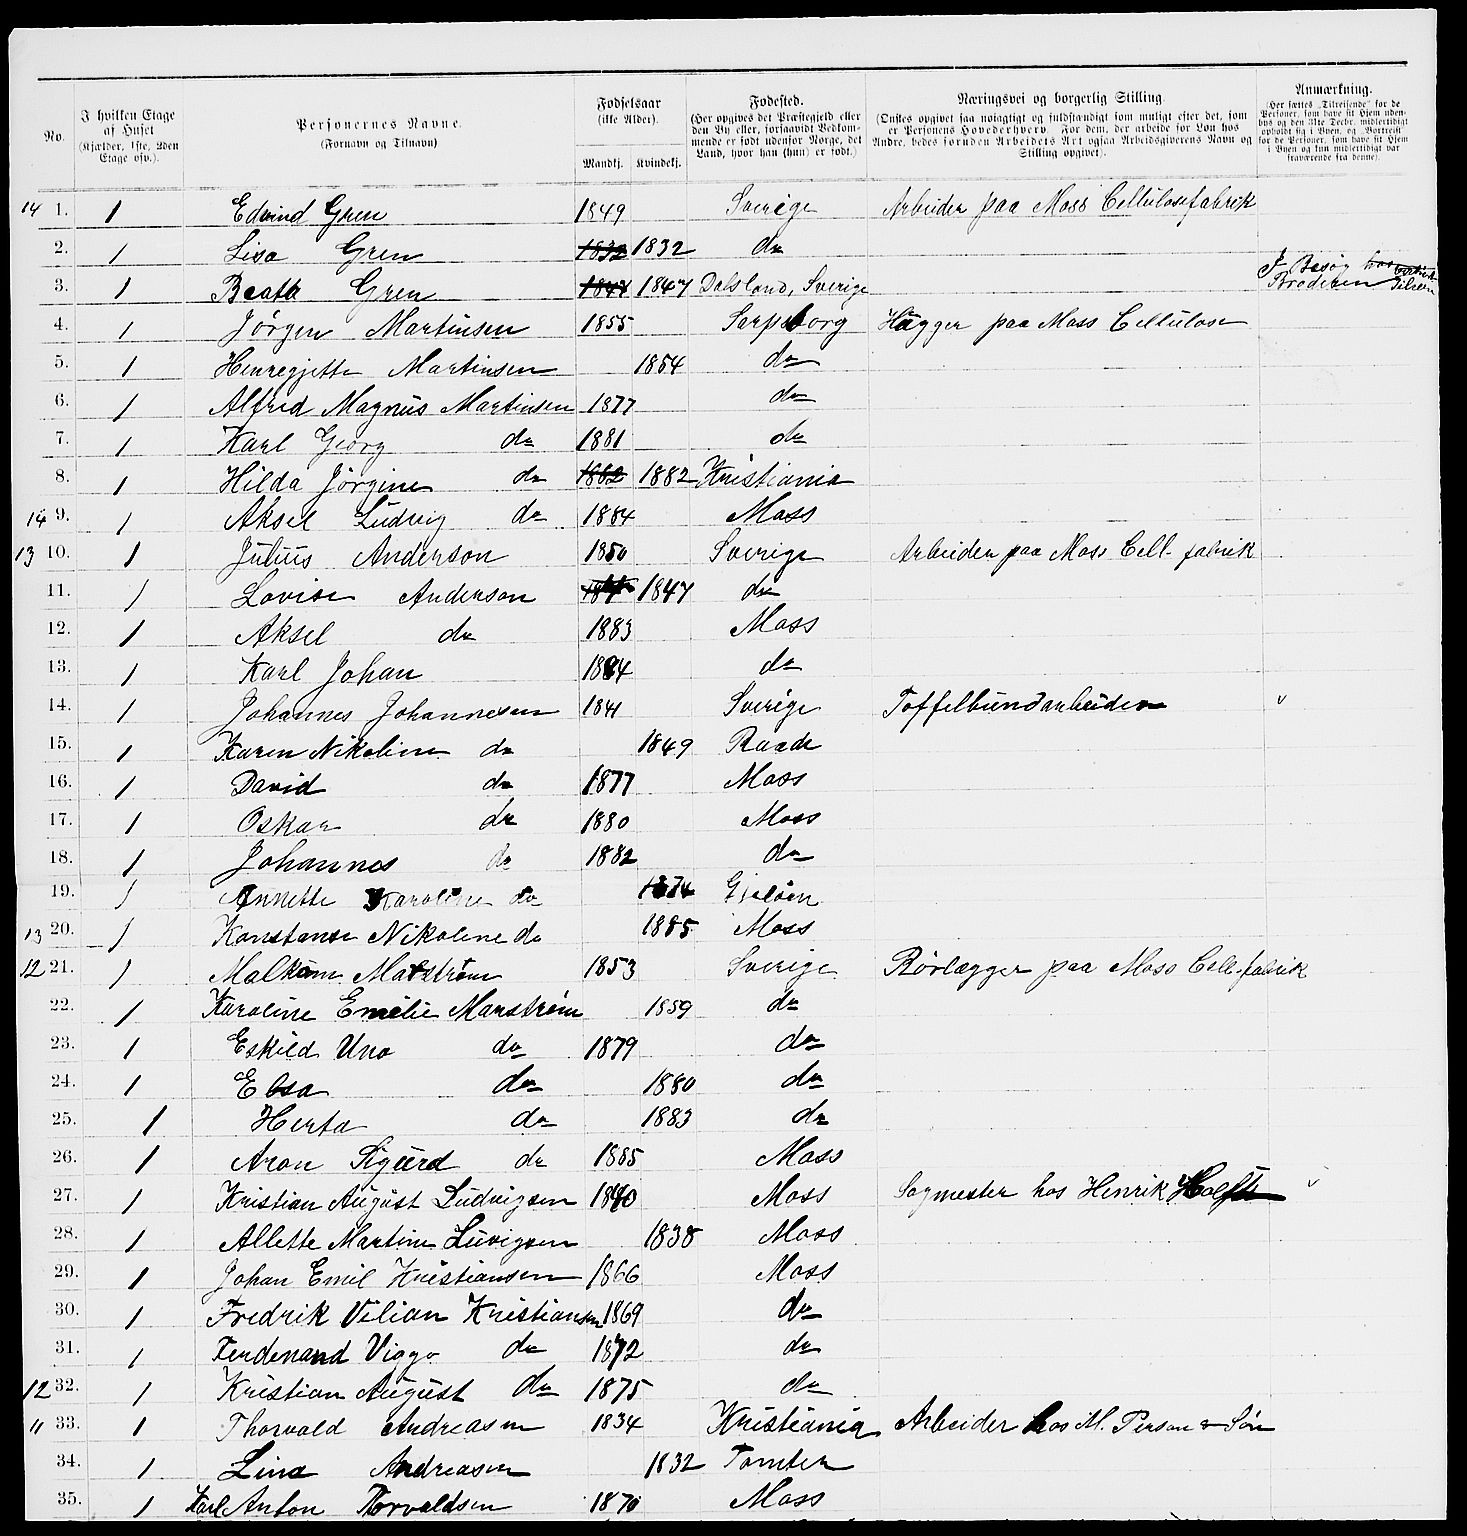 No. | I hvilken Etage af Huset (Kjælder, 1ste, 2den Etage osv.). | Personernes Navne. (Fornavn og Tilnavn) | Fødselsaar (ikke Alder). Mandkj. | Kvindekj. | Fødested. (Her opgives det Præstegjeld eller den By eller, forsaavidt Vedkommende er født udenfor Norge, det Land, hvor han (hun) er født.) | Næringsvei og borgerlig Stilling (Ønskes opgivet saa nøiagtigt og fuldstændigt som muligt efter det, som er Personens Hovederhverv. For dem, der arbeide for Løn hos Andre, bedes foruden Arbeidets Art ogsaa Arbeidsgiverens Navn og Stilling opgivet). | Anmærkning. (Her sættes „Tilreisende“ for de Personer, som have sit Hjem udenbys og den 31te Decbr. midlertidigt opholdt sig i Byen, og „Bortreist“ for de Personer, som have sit Hjem i Byen og kun midlertidigt var fraværende fra denne).
14 1. 1 Edvind Gren 1849 Sverige Arbeider paa Moss Cellulosefabrik
2. 1 Lisa Gren 1832 1832 do
3. 1 Beata Gren 1847 1847 Dalsland, Sverige I Besøg hos Broderen
4. 1 Jørgen Martinsen 1855 Sarpsborg Hugger paa Moss Cellulose
5. 1 Henregjette Martinsen 1854 do
6. 1 Alfred Magnus Martinsen 1877 do
7. 1 Karl Georg do 1881 do
8. 1 Hilda Jørgine do 1882 1882 Kristiania
14 9. 1 Aksel Ludvig do 1884 Moss
13 10. 1 Julius Anderson 1850 Sverige Arbeider paa Moss Cell. fabrik
11. 1 Lovise Anderson 1847 do
12. 1 Aksel do 1883 Moss
13. 1 Karl Johan 1884 do
14. 1 Johannes Johannesen 1841 Sverige Toffelbundarbeider
15. 1 Karen Nikoline do 1849 Raade
16. 1 David do 1877 Moss
17. 1 Oskar do 1880 Moss
18. 1 Johannes do 1882 do
19. 1 Annette Karoline do 1874 Gjeløen
13 20. 1 Konstanse Nikoline do 1885 Moss
12 21. 1 Malkom Marstrøm 1853 Sverige Rørlægger paa Moss Cell. fabrik
22. 1 Karoline Emelie Marstrøm 1859 do
23. 1 Eskild Uno do 1879 do
24. 1 Elsa do 1880 do
25. 1 Herta do 1883 do
26. 1 Aron Sigurd do 1885 Moss
27. 1 Kristian August Ludvigsen 1840 Moss Sagmester hos Henrik
28. 1 Allette Martine Luvigsen 1838 Moss
29. 1 Johan Emil Kristiansen 1866 Moss
30. 1 Fredrik Vilian Kristiansen 1869 do
31. 1 Ferdenand Viggo do 1872 do
12 32. 1 Kristian August do 1875 do
11 33. 1 Thorvald Andreasen 1834 Kristiania Arbeider hos M. Person & Søn
34. 1 Lina Andreasen 1832 Tomter
35. 1 Karl Anton Torvaldsen 1870 Moss